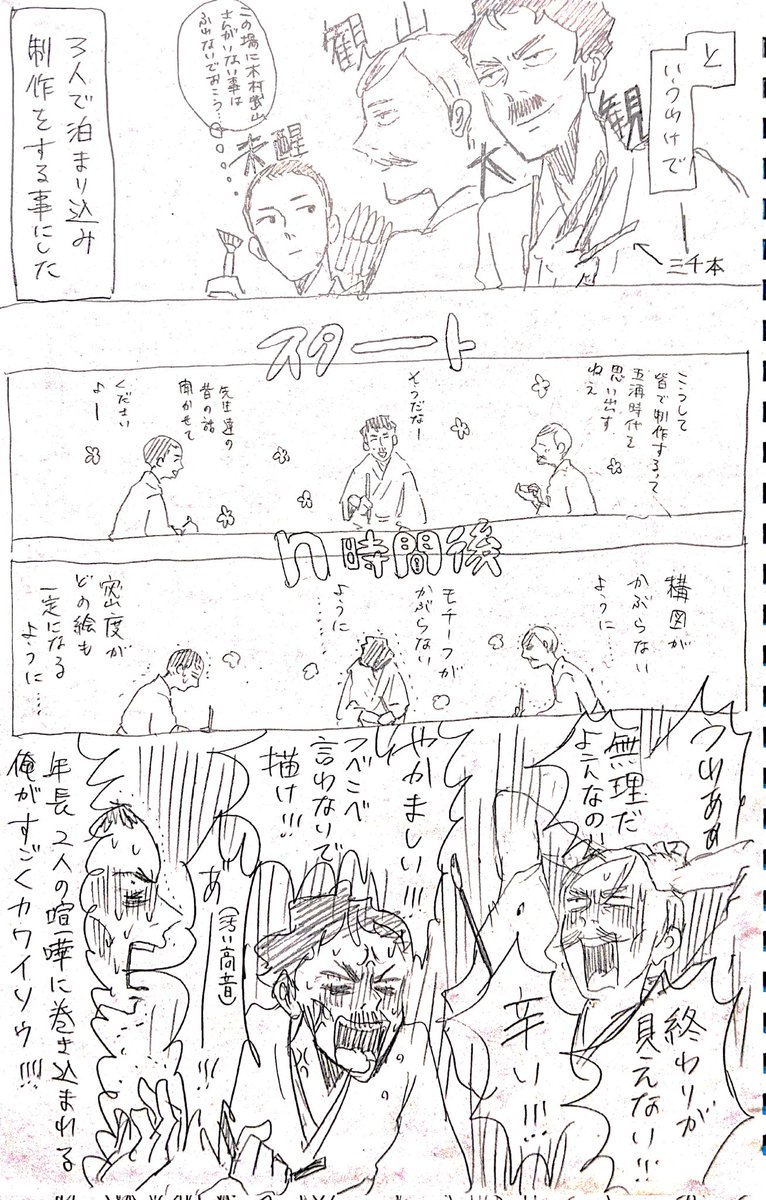 と
いうわけで
三千本
観
大
観
山
未醒
この場に木村武山
さんがいない事は
ふれないでおこう…
3人で泊まり込み
制作をする事にした
スタート
こうして
皆で制作する、って
五浦時代を
思い出す
ねえ
そうだなー
先生達の
昔の話
聞かせて
ください
よー
n時間後
構図が
かぶらない
ように……
モチーフが
かぶらない
ように
……
密度が
どの絵も
一定になる
ように……
うわああ
無理だ
よこんなの!!
終わりが
見えない!!!
辛い!!!
やかましい!!!
つべこべ
言わないで
描け!!!
あ゛
(汚い高音)
!!!
年長2人の喧嘩に巻き込まれる
俺がすごくカワイソウ!!!